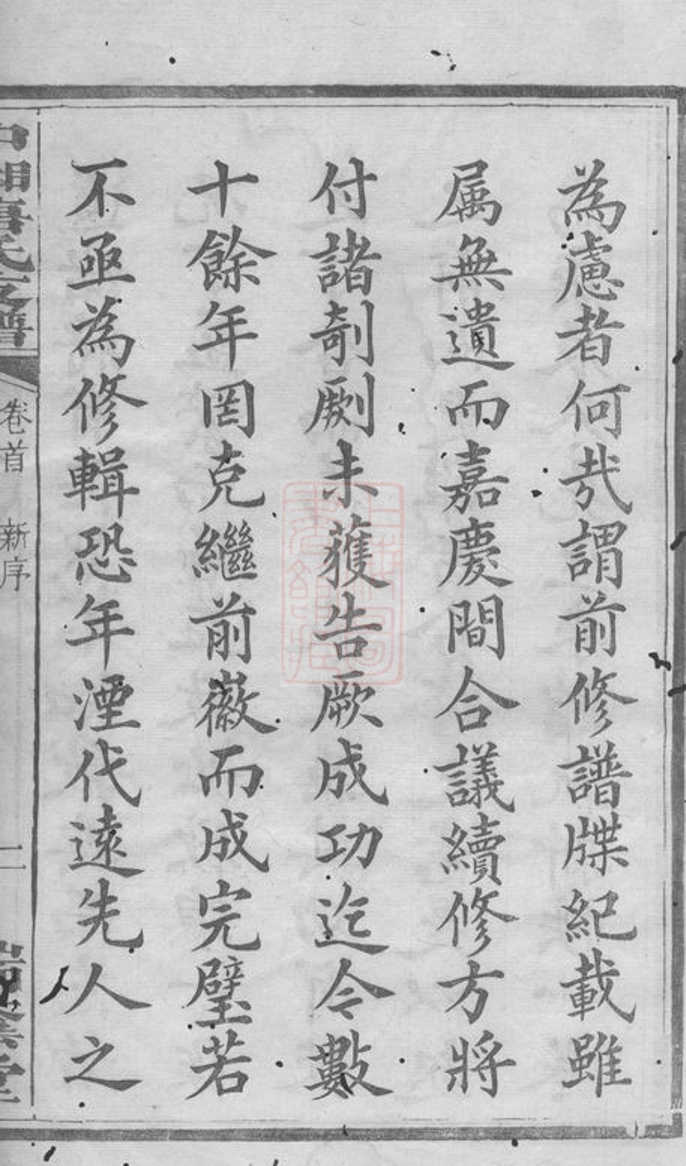 為慮者何㢤謂前修譜牒紀載雖
属無遺而嘉慶間合議續修方將
付諸剞劂未獲告厥成功迄今數
十餘年罔克繼前徽而成完璧若
不亟為修輯恐年湮代遠先人之
卷首 新序 二